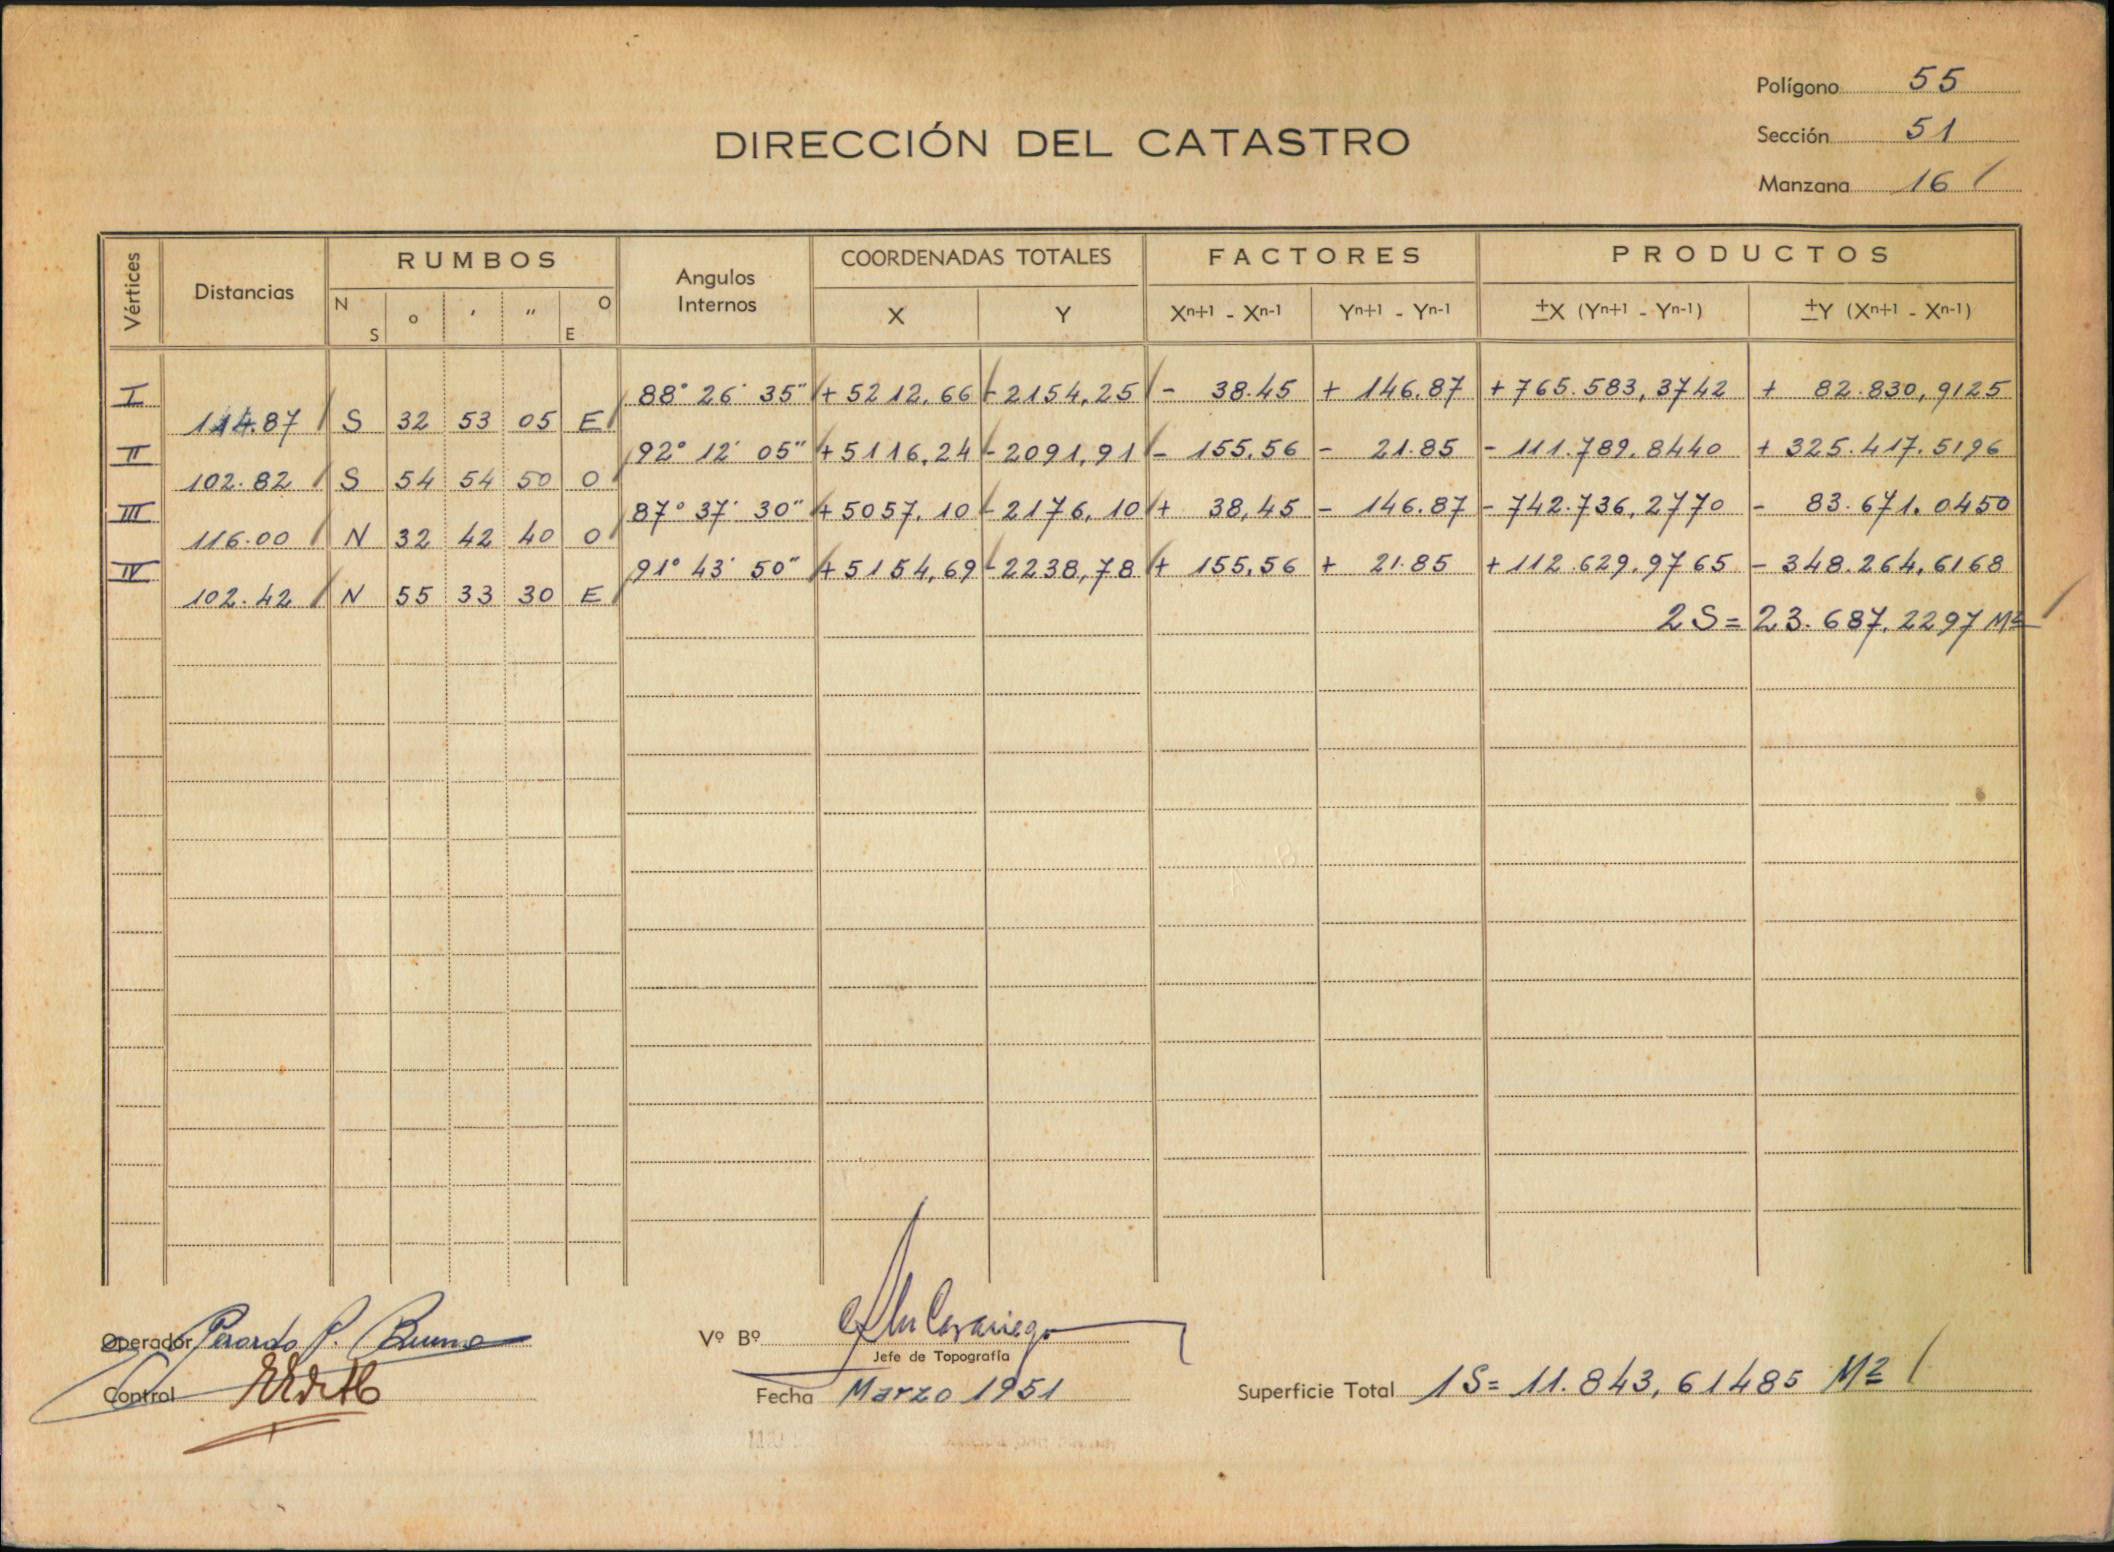 Polígono 55
DIRECCIÓN DEL CATASTRO
Sección 51
Manzana 16
Vértices Distancias RUMBOS Angulos Internos COORDENADAS TOTALES FACTORES PRODUCTOS
N S o ʹ ʺ O E X Y Xn+1 - Xn-1 Yn+1 - Yn-1 ±X (Yn+1 - Yn-1) ±Y (Xn+1 - Xn-1)
I 88° 26' 35" +5212,66 -2154,25 - 38.45 + 146.87 +765.583,3742 + 82.830,9125
114.87 S 32 53 05 E
II 92° 12' 05" +5116,24 -2091,91 - 155,56 - 21.85 -111.789.8440 +325.417.5196
102.82 S 54 54 50 O
III 87° 37' 30" +5057,10 -2176,10 + 38,45 - 146.87 -742.736,2770 - 83.671.0450
116.00 N 32 42 40 O
IV 91° 43' 50" +5154,69 -2238,78 + 155,56 + 21.85 +112.629.9765 -348.264,6168
102.42 N 55 33 30 E
2S= 23.687,2297 M2
Operador
Vº Bº
Jefe de Topografía
Control
Fecha Marzo 1951
Superficie Total 1S= 11.843,61485 M2